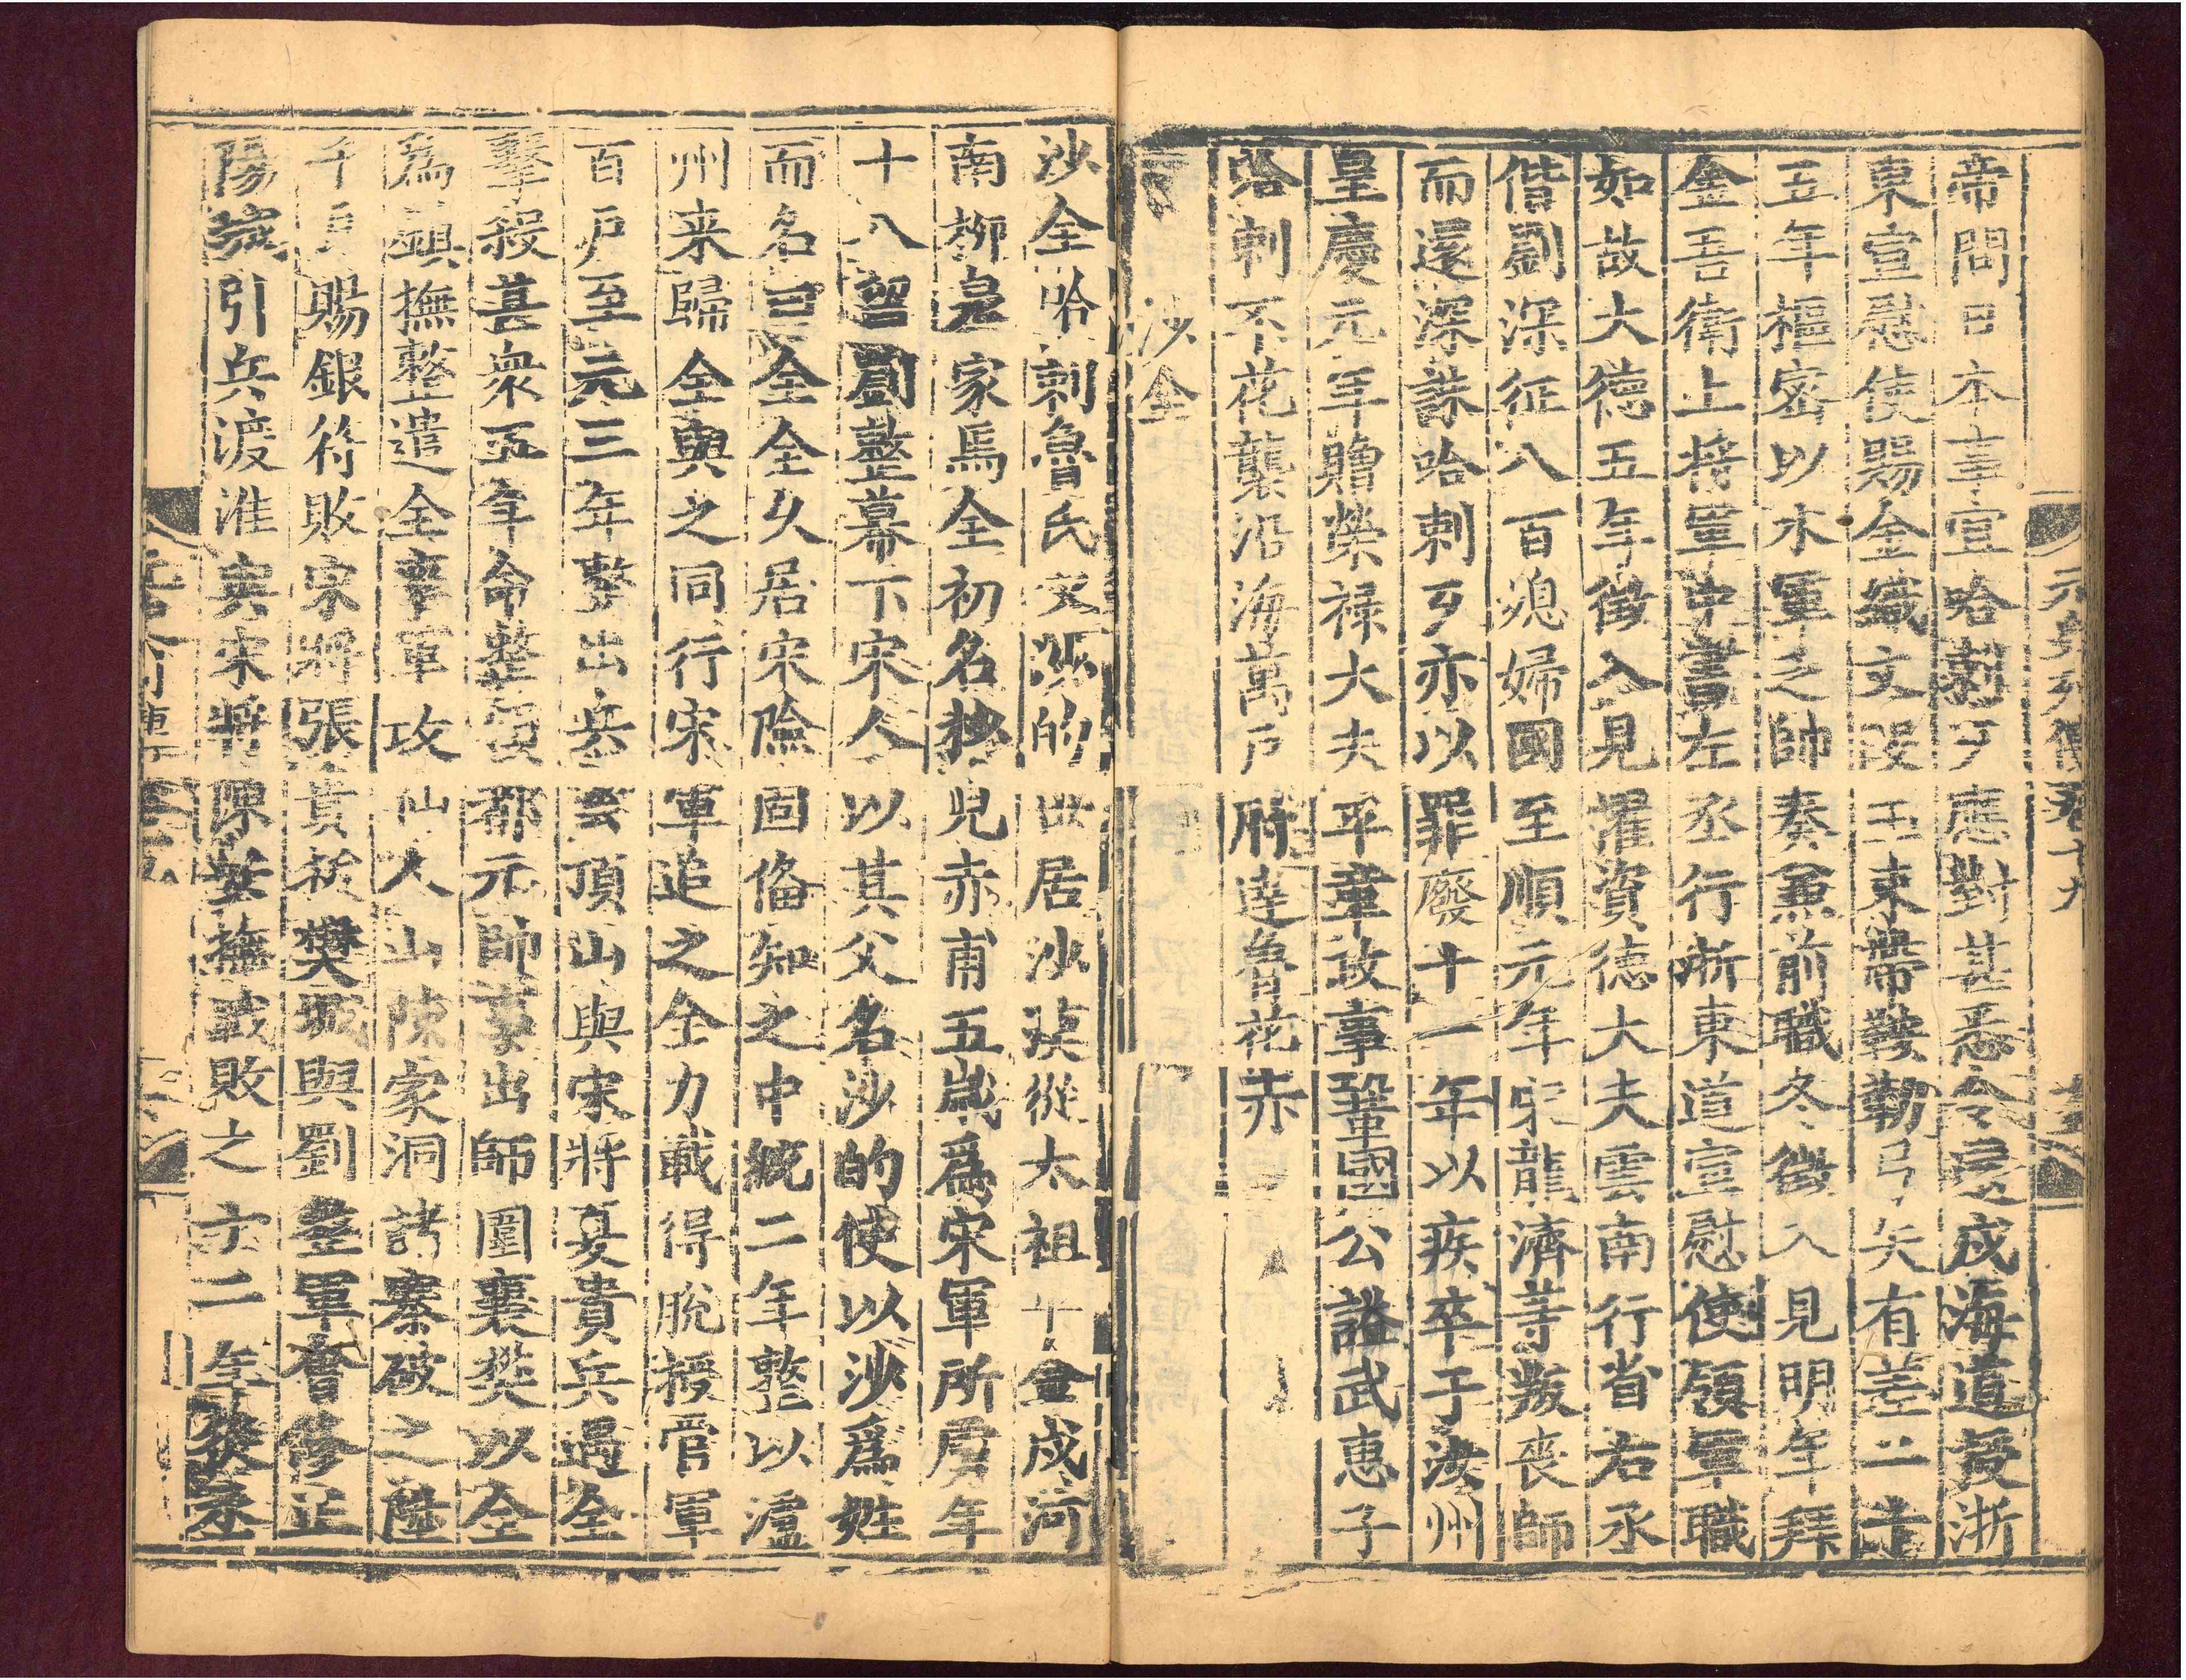 元史列傳卷十九
帝問日本事宜哈剌䚟應對甚悉令還戍海道授浙
東宣慰使賜金織文段玉束帶鞍勒弓矢有差二十
五年樞密以水軍乏帥奏兼前職冬徵入見明年拜
金吾衛上將軍中書左丞行浙東道宣慰使領軍職
如故大德五年徵入見擢資德大夫雲南行省右丞
偕劉深征八百媳婦國至順元年宋龍濟等叛喪師
而還深誅哈剌歹亦以罪廢十一年以疾卒于汝州
皇慶元年贈榮祿大夫平章政事鞏國公諡武惠子
哈剌不花襲沿海萬戶府達魯花赤
沙全
沙全哈剌魯氏父沙的世居沙漠從太祖平金戍河
南柳泉家焉全初名抄兒赤甫五歲爲宋軍所虜年
十八留劉整幕下宋人以其父名沙的使以沙爲姓
而名曰全全久居宋險固俻知之中統二年整以瀘
州来歸全與之同行宋軍追之全力戰得脫授管軍
百戶至元三年整出兵雲頂山與宋將夏貴兵遇全
擊殺甚衆五年命整爲都元帥事出師圍襄樊以全
爲鎮撫整遣全率軍攻仙人山陳家洞諸寨破之陞
千戶賜銀符敗宋將張貴拔樊城與劉整軍會修正
陽城引兵渡淮與宋將陳安撫戰敗之十二年從丞